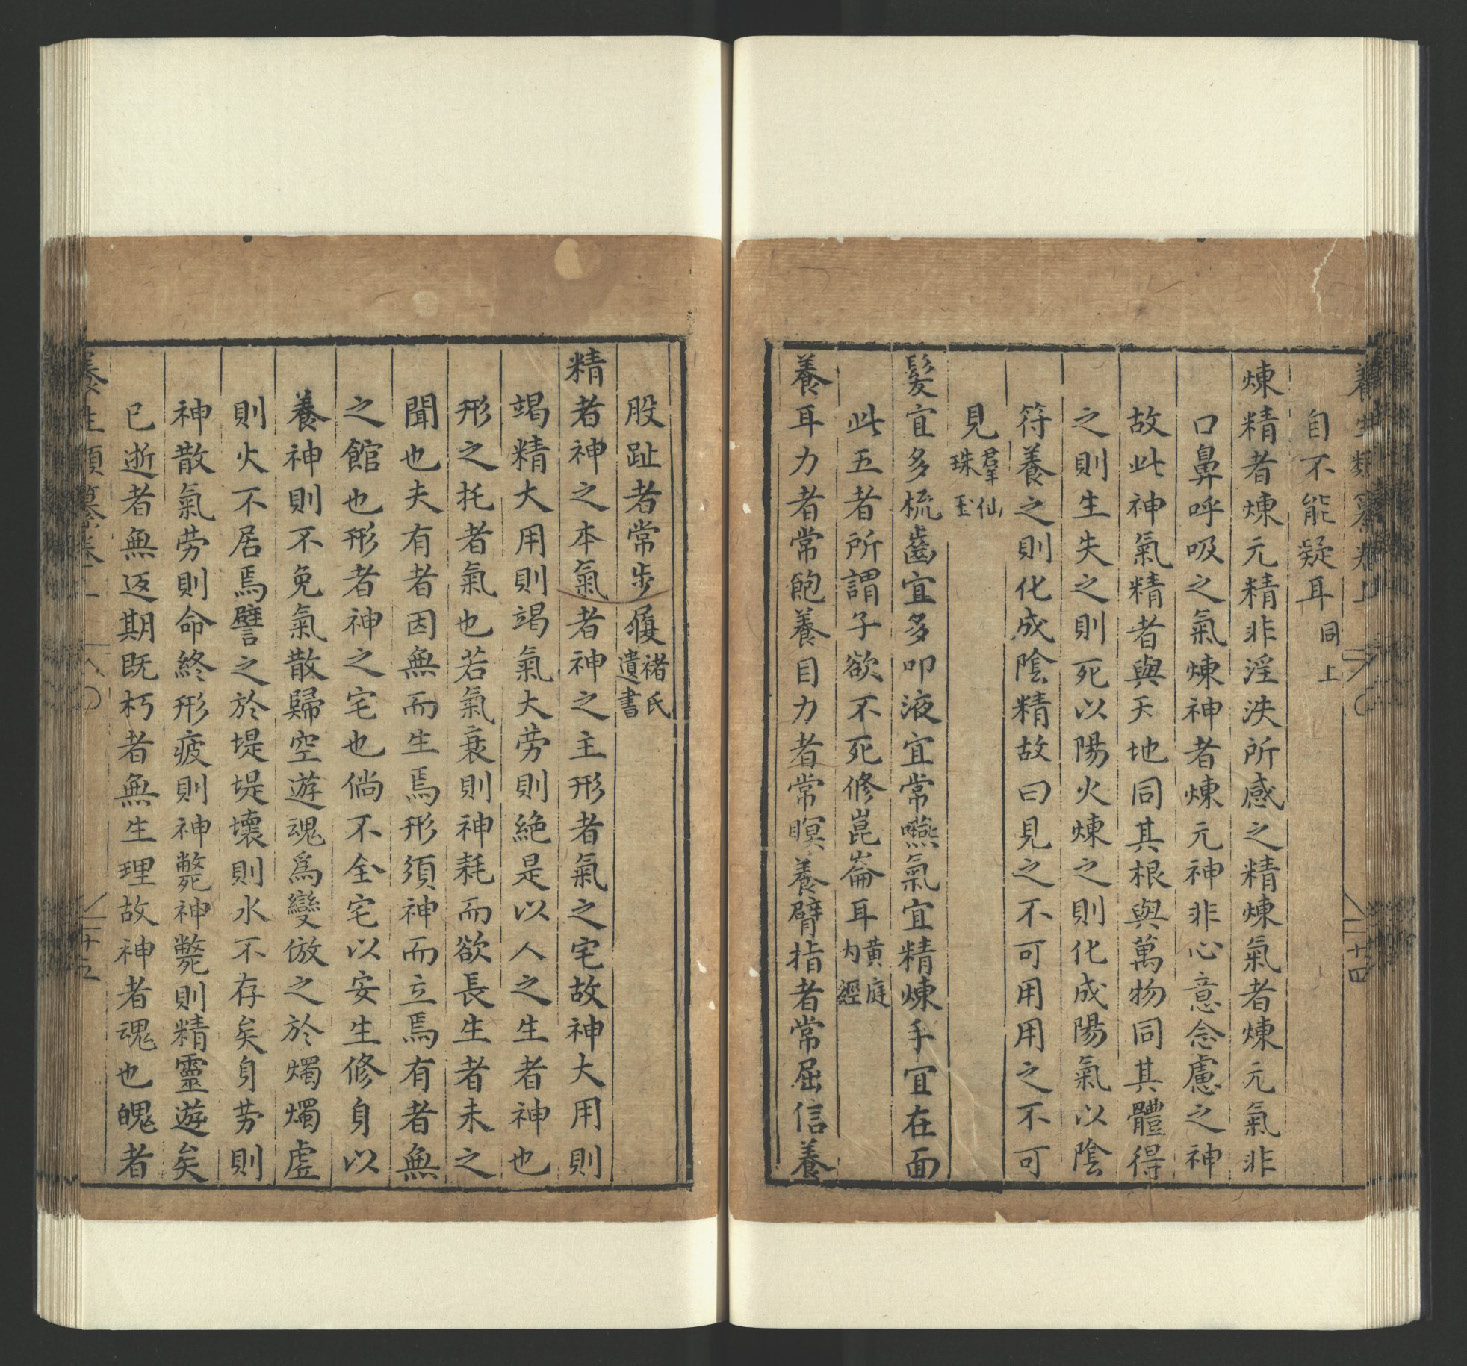 養生類纂卷上
廿四
自不能疑耳同上
煉精者煉元精非淫泆所感之精煉氣者煉元氣非
口鼻呼吸之氣煉神者煉元神非心意念慮之神
故此神氣精者與天地同其根與萬物同其體得
之則生失之則死以陽火煉之則化成陽氣以陰
符養之則化成陰精故曰見之不可用用之不可
見羣仙珠玉
髮宜多梳齒宜多叩液宜常嚥氣宜精煉手宜在面
此五者所謂子欲不死修崑崙耳黃庭內經
養耳力者常飽養目力者常瞑養臂指者常屈信養
股趾者常步履褚氏遺書
精者神之本氣者神之主形者氣之宅故神大用則
竭精大用則竭氣大勞則絶是以人之生者神也
形之托者氣也若氣衰則神耗而欲長生者未之
聞也夫有者因無而生焉形須神而立焉有者無
之館也形者神之宅也倘不全宅以安生修身以
養神則不免氣散歸空遊魂爲變倣之於燭燭虛
則火不居焉譬之於堤堤壞則水不存矣身劳則
神散氣劳則命終形疲則神斃神斃則精靈遊矣
已逝者無返期既朽者無生理故神者魂也魄者
養生類纂卷上
廿五